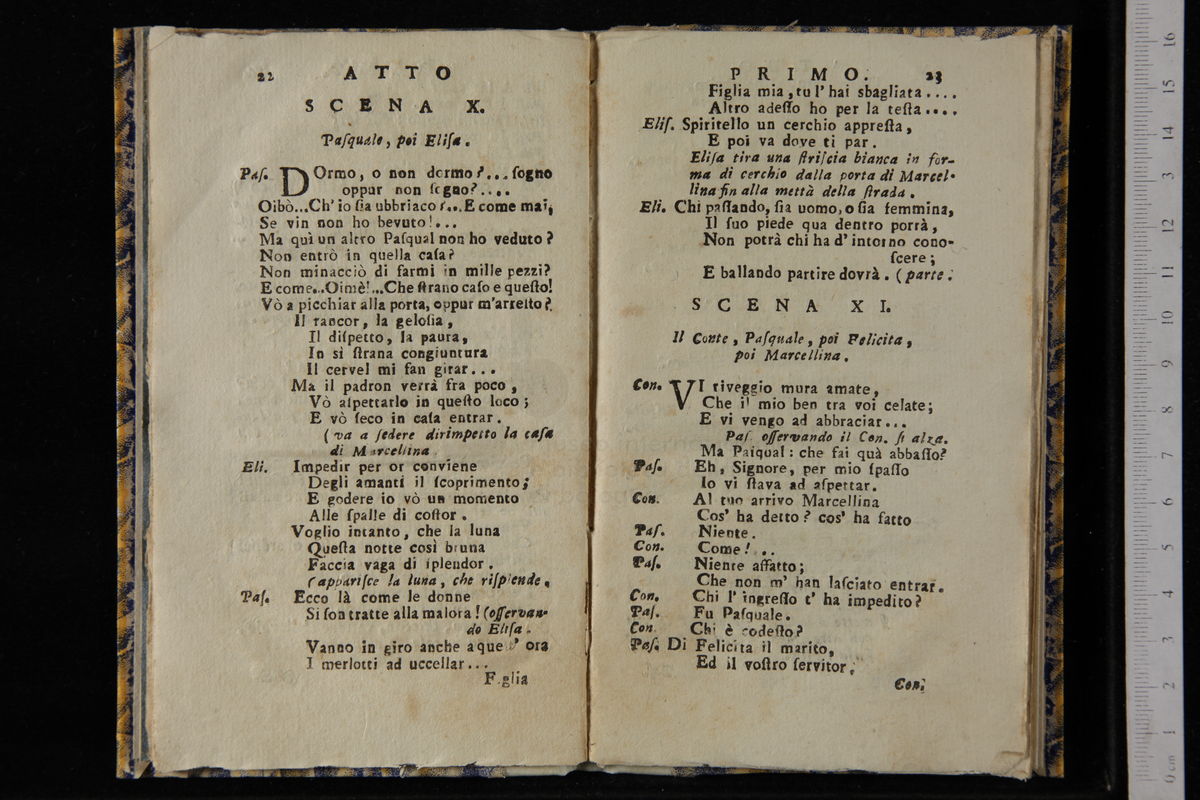 22 ATTO
SCENA X.
Paſquale, poi Eliſa.
Paſ. DOrmo, o non dormo?... ſogno
oppur non ſogno?....
Oibò...Ch' io ſia ubbriaco?...E come mai,
Se vin non ho bevuto!...
Ma quì un altro Paſqual non ho veduto?
Non entrò in quella caſa?
Non minacciò di farmi in mille pezzi?
E come...Oimè!...Che ſtrano caſo e queſto!
Vò a picchiar alla porta, oppur m'arreſto?
Il rancor, la geloſia,
Il diſpetto, la paura,
In sì ſtrana congiuntura
Il cervel mi fan girar...
Ma il padron verrà fra poco,
Vò aſpettarlo in queſto loco;
E vò ſeco in caſa entrar.
(va a ſedere dirimpetto la caſa
di Marcellina.
Eli. Impedir per or conviene
Degli amanti il ſcoprimento;
E godere io vò un momento
Alle ſpalle di coſtor.
Voglio intanto, che la luna
Queſta notte così bruna
Faccia vaga di ſplendor.
(appariſce la luna, che riſplende.
Paſ. Ecco là come le donne
Si ſon tratte alla malora! (oſſervan-
do Eliſa.
Vanno in giro anche a queſt' ora
I merlotti ad uccellar...
Figlia
PRIMO. 23
Figlia mia, tu l' hai sbagliata....
Altro adeſſo ho per la teſta....
Eliſ. Spiritello un cerchio appreſta,
E poi va dove ti par.
Eliſa tira una ſtriſcia bianca in for-
ma di cerchio dalla porta di Marcel-
lina fin alla mettà della ſtrada.
Eli. Chi paſſando, ſia uomo, o ſia femmina,
Il ſuo piede qua dentro porrà,
Non potrà chi ha d' intorno cono-
ſcere;
E ballando partire dovrà. (parte.
SCENA XI.
Il Conte, Paſquale, poi Felicita,
poi Marcellina.
Con. VI riveggio mura amate,
Che il mio ben tra voi celate;
E vi vengo ad abbraciar...
Paſ. oſſervando il Con. ſi alza.
Ma Paſqual: che fai quà abbaſſo?
Paſ. Eh, Signore, per mio ſpaſſo
Io vi ſtava ad aſpettar.
Con. Al tuo arrivo Marcellina
Cos' ha detto? cos' ha fatto
Paſ. Niente.
Con. Come!...
Paſ. Niente affatto;
Che non m' han laſciato entrar.
Con. Chi l' ingreſſo t' ha impedito?
Paſ. Fu Paſquale.
Con. Chi è codeſto?
Paſ. Di Felicita il marito,
Ed il voſtro ſervitor.
Con.
0 cm 1 2 3 4 5 6 7 8 9 10 11 12 13 14 15 16